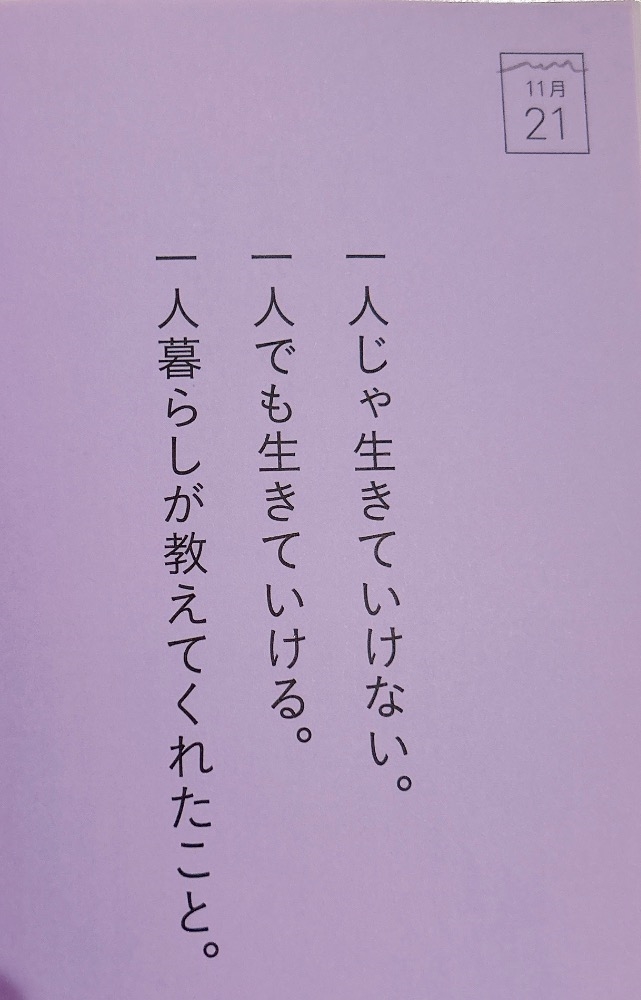 11月
21
一人じゃ生きていけない。
一人でも生きていける。
一人暮らしが教えてくれたこと。